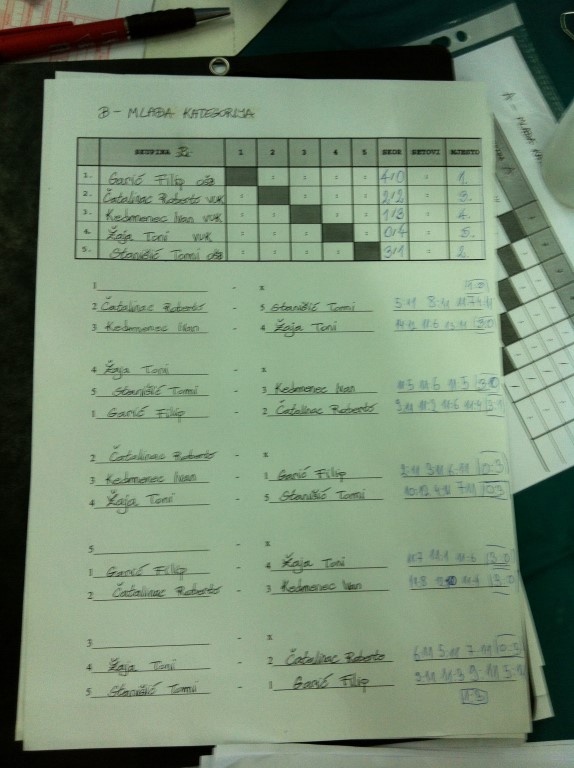 B - MLAĐA KATEGORIJA
SKUPINA B 1 2 3 4 5 SKOR SETOVI MJESTO
1. Garić Filip OŠB : : : : 4:0 : 1.
2. Čatalinac Roberto VUK : : : : 2/2 : 3.
3. Kedmenec Ivan VUK : : : : 1/3 : 4.
4. Žaja Toni VUK : : : : 0/4 : 5.
5. Stanišić Tomi OŠB : : : : 3/1 : 2.
1 - x
2 Čatalinac Roberto - 5 Stanišić Tomi 5:11 8:11
3 Kedmenec Ivan - 4 Žaja Toni 11:6 13:11 3:0
4 Žaja Toni - x
5 Stanišić Tomi - 3 Kedmenec Ivan 11:5 11:6 11:5 3:0
1 Garić Filip - 2 Čatalinac Roberto 11:6 3:1
2 Čatalinac Roberto - x
3 Kedmenec Ivan - 1 Garić Filip 0:3
4 Žaja Toni - 5 Stanišić Tomi 10:12 7:11 0:3
5 - x
1 Garić Filip - 4 Žaja Toni 11:7 11:1 11:6 3:0
2 Čatalinac Roberto - 3 Kedmenec Ivan 11:8 11:4 3:0
3 - x
4 Žaja Toni - 2 Čatalinac Roberto 6:11 5:11 7:11 0:3
5 Stanišić Tomi - 1 Garić Filip 11:3
1:3
A - MLAĐA